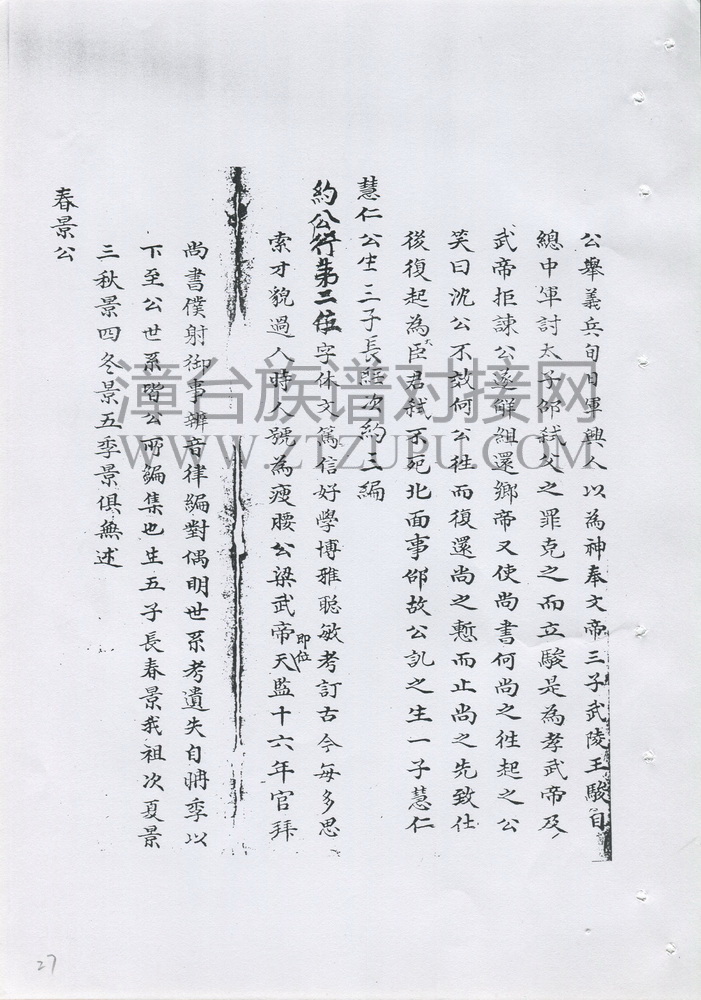 公舉義兵旬日軍興人以為神奉文帝三子武陵王駿自
總中軍討太子邵弒父之罪克之而立駿是為孝武帝及
武帝拒諫公遂解組還鄉帝又使尚書何尚之徃起之公
笑曰沈公不效何公徃而復還尚之慙而止尚之先致仕
後復起為大臣君弒不死北面事邵故公訕之生一子慧仁
慧仁公生三子長紹次約三編
約公行第二位字休文篤信好學博雅聰敏考訂古今每多思
索才貌過人時人號為瘦腰公梁武帝即位天監十六年官拜
尚書僕射御事辨音律編對偶明世系考遺失自聃季以
下至公世系皆公所編集也生五子長春景我祖次夏景
三秋景四冬景五季景俱無述
春景公
漳台族谱对接网
WWW.ZTZUPU.COM
27